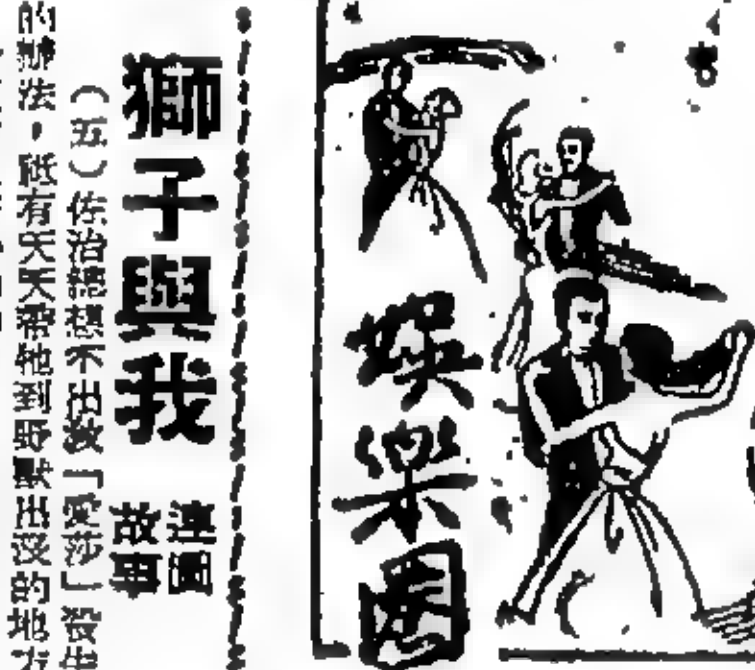 娛樂圈
獅子與我
連圖
故事
（五）佐治總想不出教「愛莎」發生
的辦法，祗有天天帶牠到野獸出沒的地方